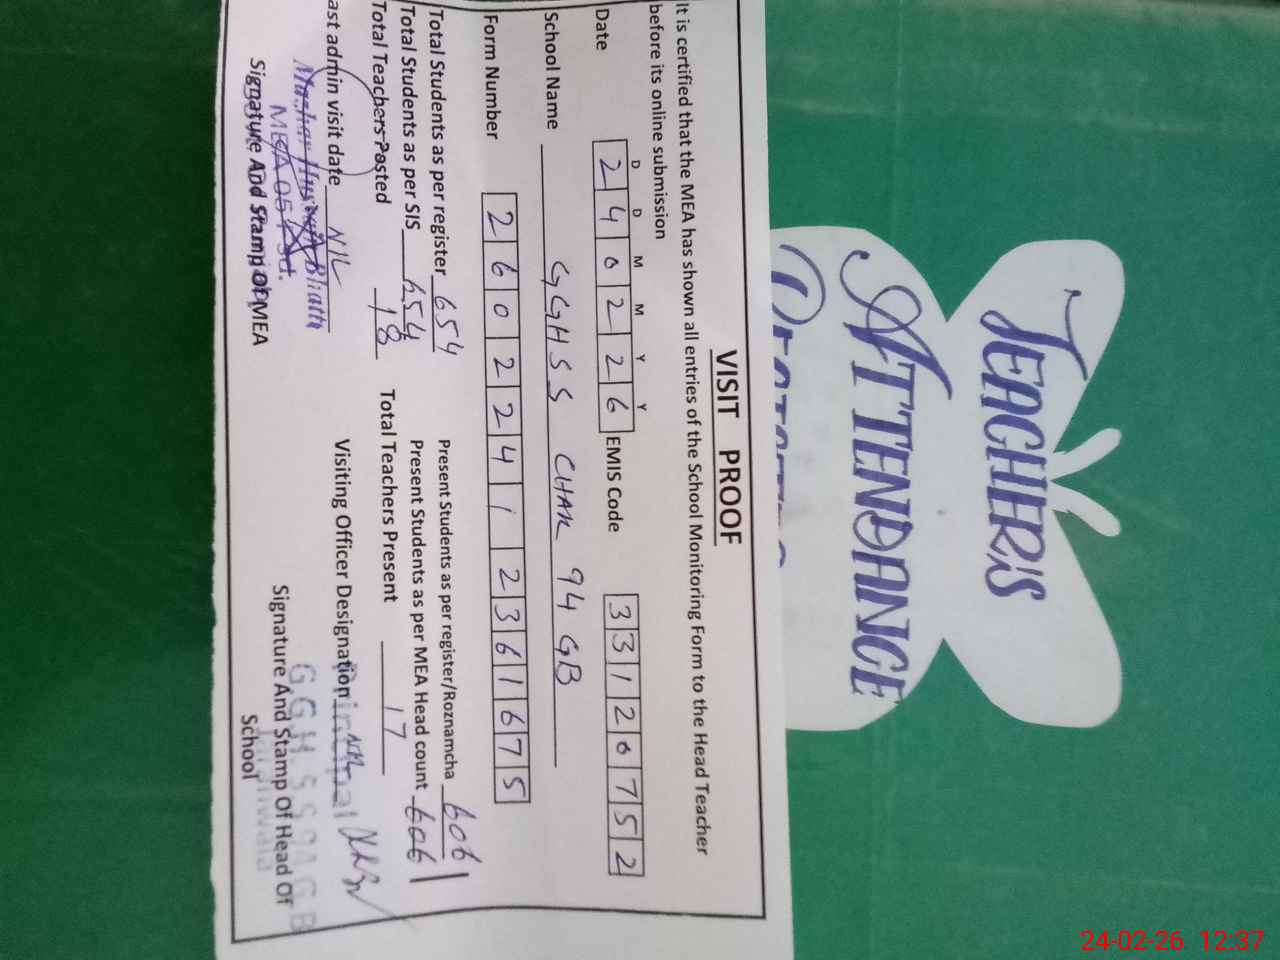 TEACHER'S
ATTENDANCE
VISIT PROOF
It is certified that the MEA has shown all entries of the School Monitoring Form to the Head Teacher
before its online submission
D D M M Y Y
Date 2 4 0 2 2 6 EMIS Code 3 3 1 2 0 7 5 2
School Name GGHSS CHAK 94 GB
Form Number 2 6 0 2 2 4 1 2 3 6 1 6 7 5
Total Students as per register 654 Present Students as per register/Roznamcha 606
Total Students as per SIS 654 Present Students as per MEA Head count 606
Total Teachers Posted 18 Total Teachers Present 17
ast admin visit date NIL Visiting Officer Designation NIL
Principal
Mazhar Hussain Bhatti
MEA 05
Signature And Stamp Of MEA Signature And Stamp Of Head Of
School
G.G.H.S.S 94 G B
24-02-26 12:37